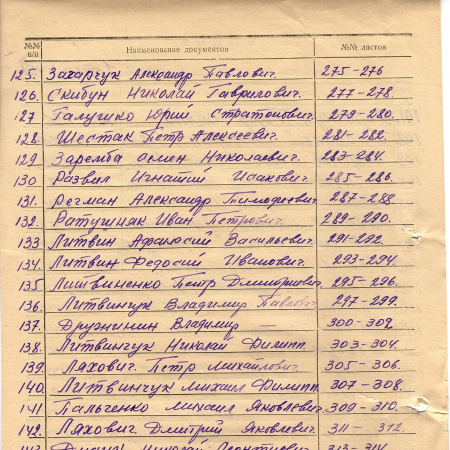 №№ п/п Наименование документов №№ листов
125. Захарчук Александр Павлович. 275-276
126. Скибун Николай Гаврилович. 277-278.
127 Галушко Юрий Стратонович. 279-280.
128. Шестак Петр Алексеевич. 281-282.
129 Заремба Николаевич. 283-284.
130 Развил Игнатий Исакович. 285-286.
131. Регман Александр Тимофеевич. 287-288
132. Ратушняк Иван Петрович. 289-290.
133 Литвин Афанасий Васильевич. 291-292.
134. Литвин Федосий Иванович. 293-294.
135 Литвиненко Петр Дмитриевич. 295-296.
136. Литвинчук Владимир Павлович 297-299.
137. Дружинин Владимир — 300-302.
138. Литвинчук Николай Филипп. 303-304.
139. Ляхович. Петр Михайлович. 305-306.
140. Литвинчук Михаил Филипп. 307-308.
141 Пальгенко Михаил Яковлевич. 309-310.
142. Ляхович. Дмитрий Яковлевич. 311- 312.
Николай 313-314